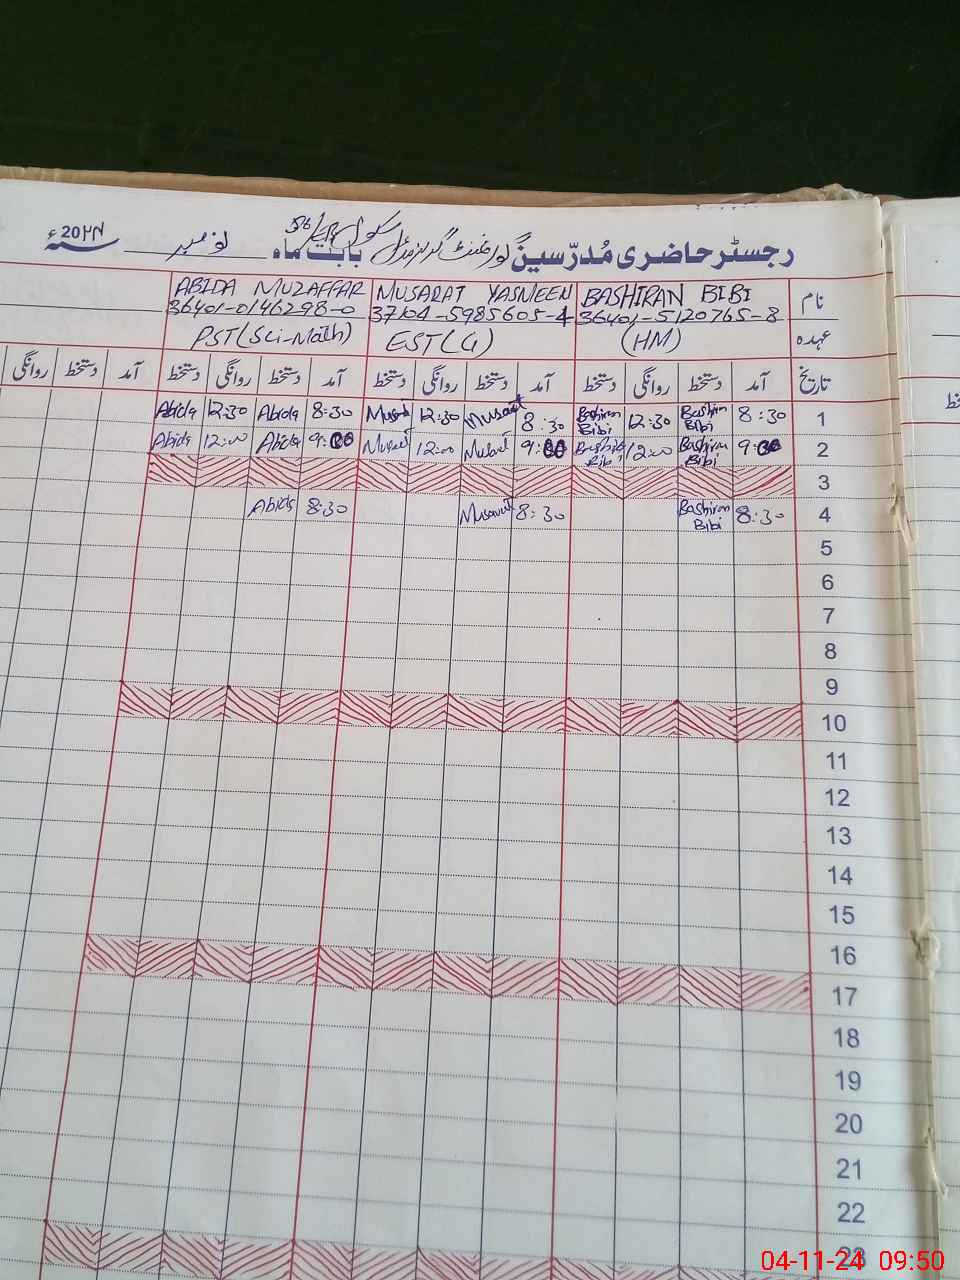 رجسٹر حاضری مُدرّسین گورنمنٹ گرلز مڈل سکول 56/EB بابت ماہ نومبر سنہ 20۲۴ء
نام BASHIRAN BIBI MUSARAT YASMEEN ABIDA MUZAFFAR
36401-5120765-8 37104-5985605-4 36401-0146298-0
عہدہ (HM) EST(G) PST(Sci-Math)
تاریخ آمد دستخط روانگی دستخط آمد دستخط روانگی دستخط آمد دستخط روانگی دستخط آمد دستخط روانگی
1 8:30 Bashiran Bibi 12:30 Bashiran Bibi 8:30 Musarat 12:30 Musarat 8:30 Abida 12:30 Abida
2 9:00 Bashiran Bibi 12:00 Bashiran Bibi 9:00 Musarat 12:00 Musarat 9:00 Abida 12:00 Abida
3
4 8:30 Bashiran Bibi 8:30 Musarat 8:30 Abida
5
6
7
8
9
10
11
12
13
14
15
16
17
18
19
20
21
22
23
04-11-24 09:50